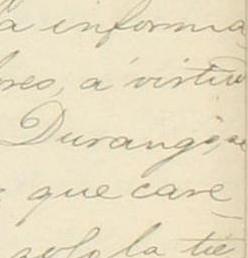 a informa
res, á virtud
Durango, se
que care
solo la tie